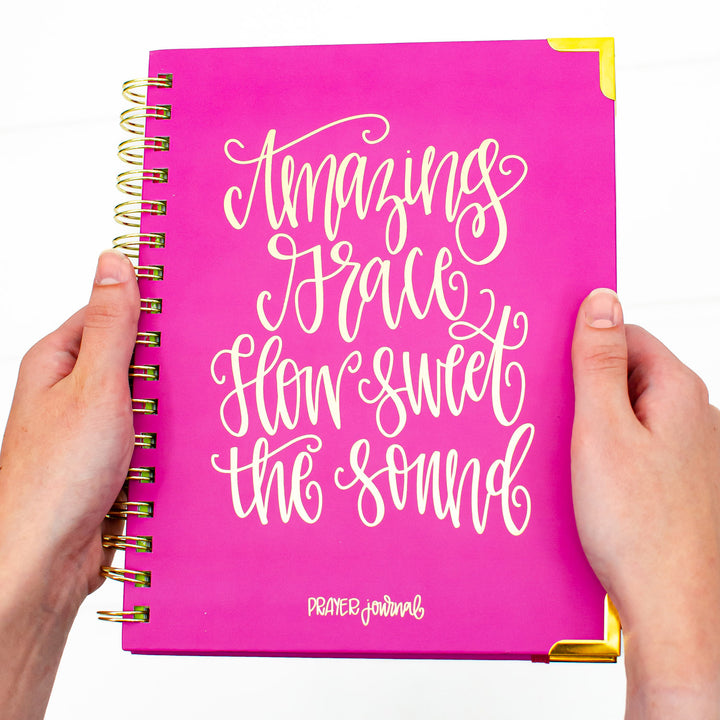 Amazing
Grace
How sweet
the sound
PRAYER journal